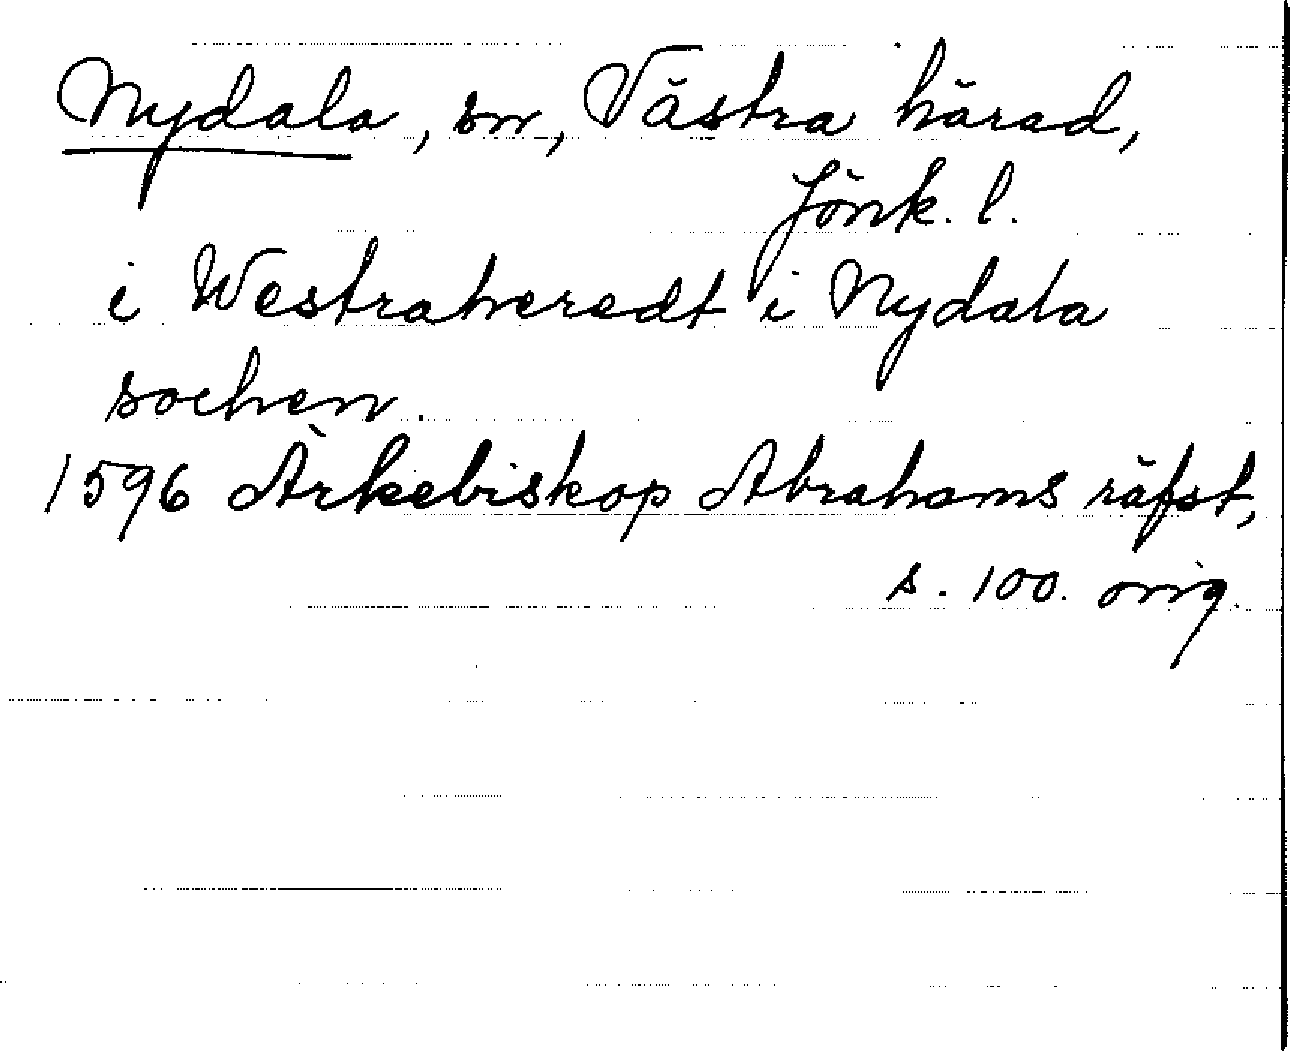 Nydala, sn, Västra härad,
Jönk. l.
i Westraheredt i Nydala
sochen.
1596 Ärkebiskop Abrahams räfst,
s. 100. orig.